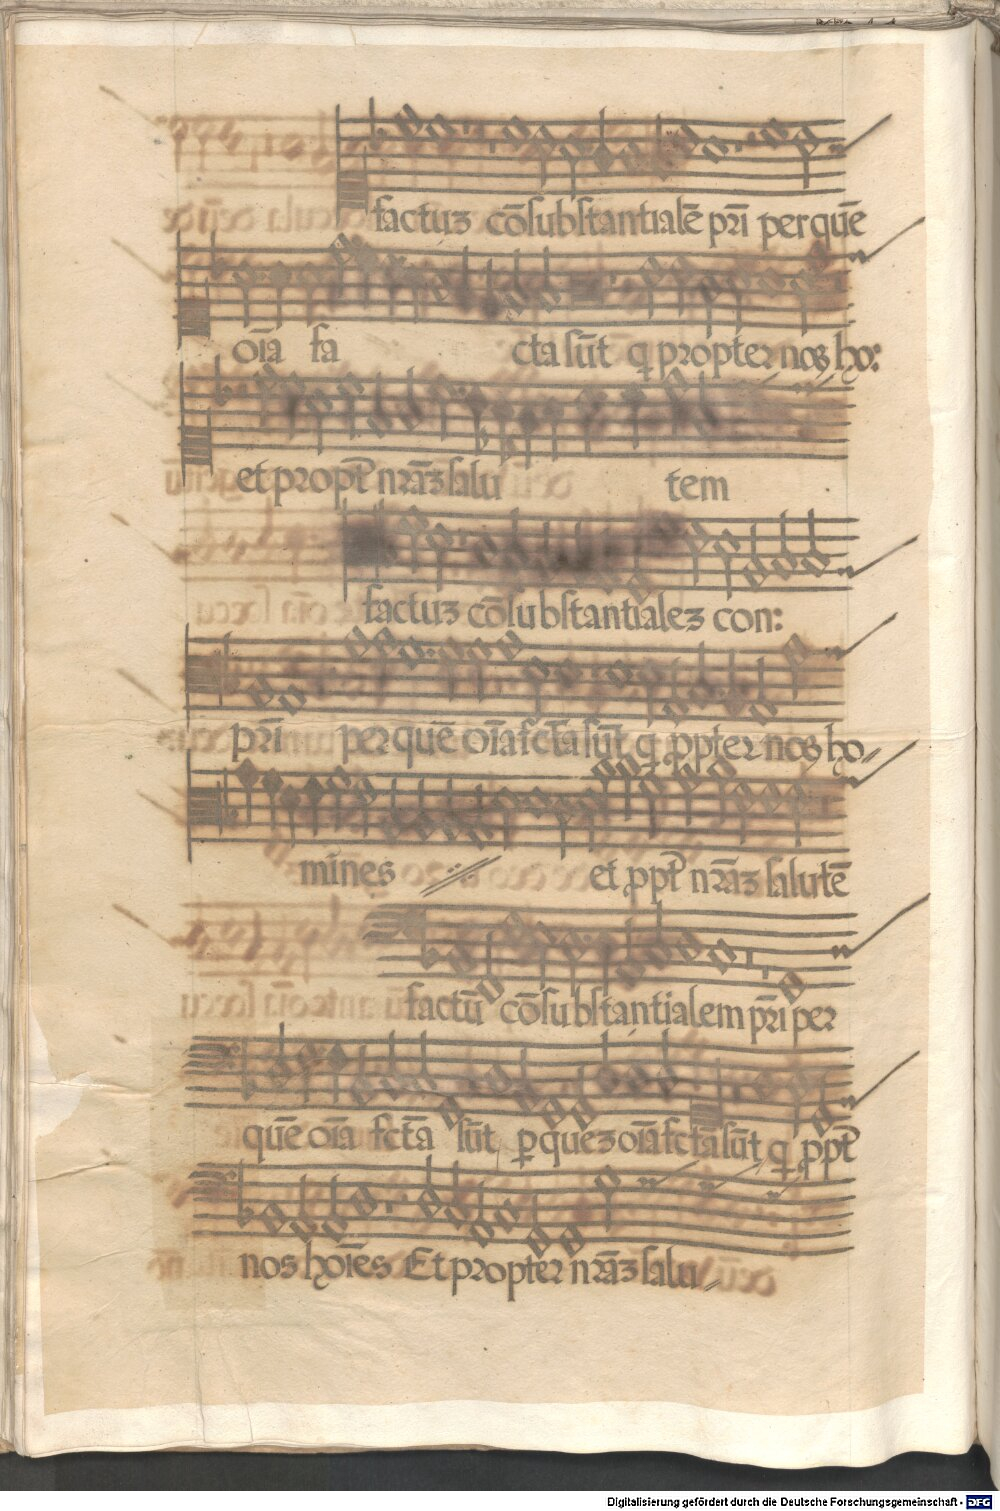 factuʒ cōsubstantialē pr̄i per quē
oīa fa cta sūt q propter nos ho:
et propt̄ nr̄aʒ salu tem
factuʒ cōsubstantialeʒ con:
pr̄i per quē oīa fcta sūt q ppter nos ho
mines et ppt̄ nr̄aʒ salutē
factū cōsubstantialem pr̄i per
quē oīa fcta sūt p queʒ oīa fcta sūt q ppt̄
nos hoīes Et propter nr̄aʒ salu
Digitalisierung gefördert durch die Deutsche Forschungsgemeinschaft - DFG